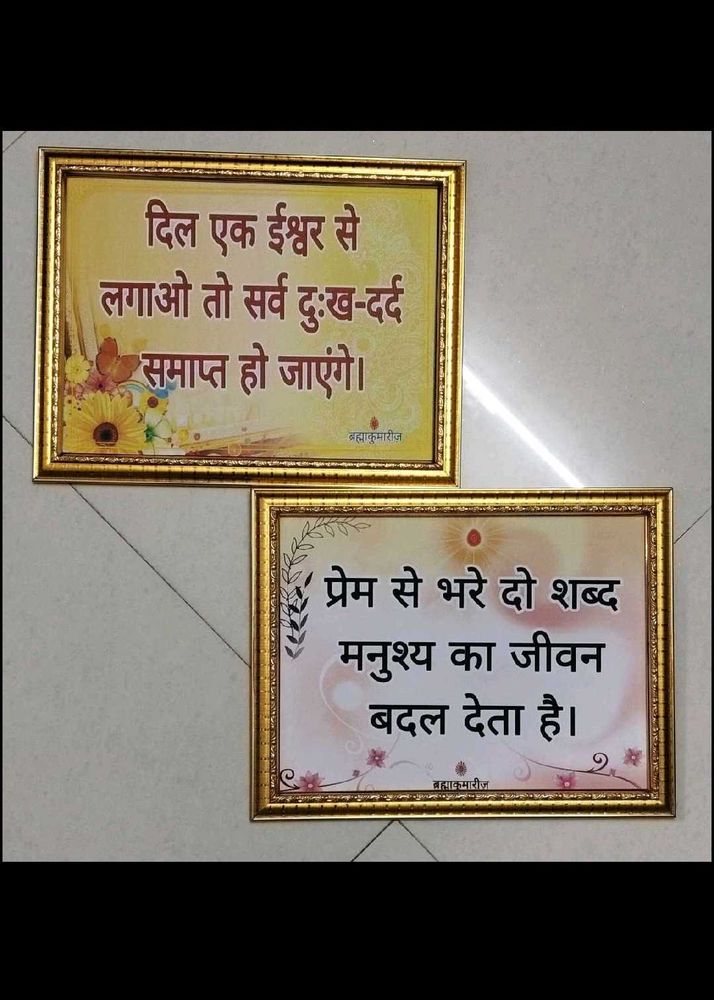 दिल एक ईश्वर से
लगाओ तो सर्व दुःख-दर्द
समाप्त हो जाएंगे।
ब्रह्माकुमारीज़
प्रेम से भरे दो शब्द
मनुश्य का जीवन
बदल देता है।
ब्रह्माकुमारीज़